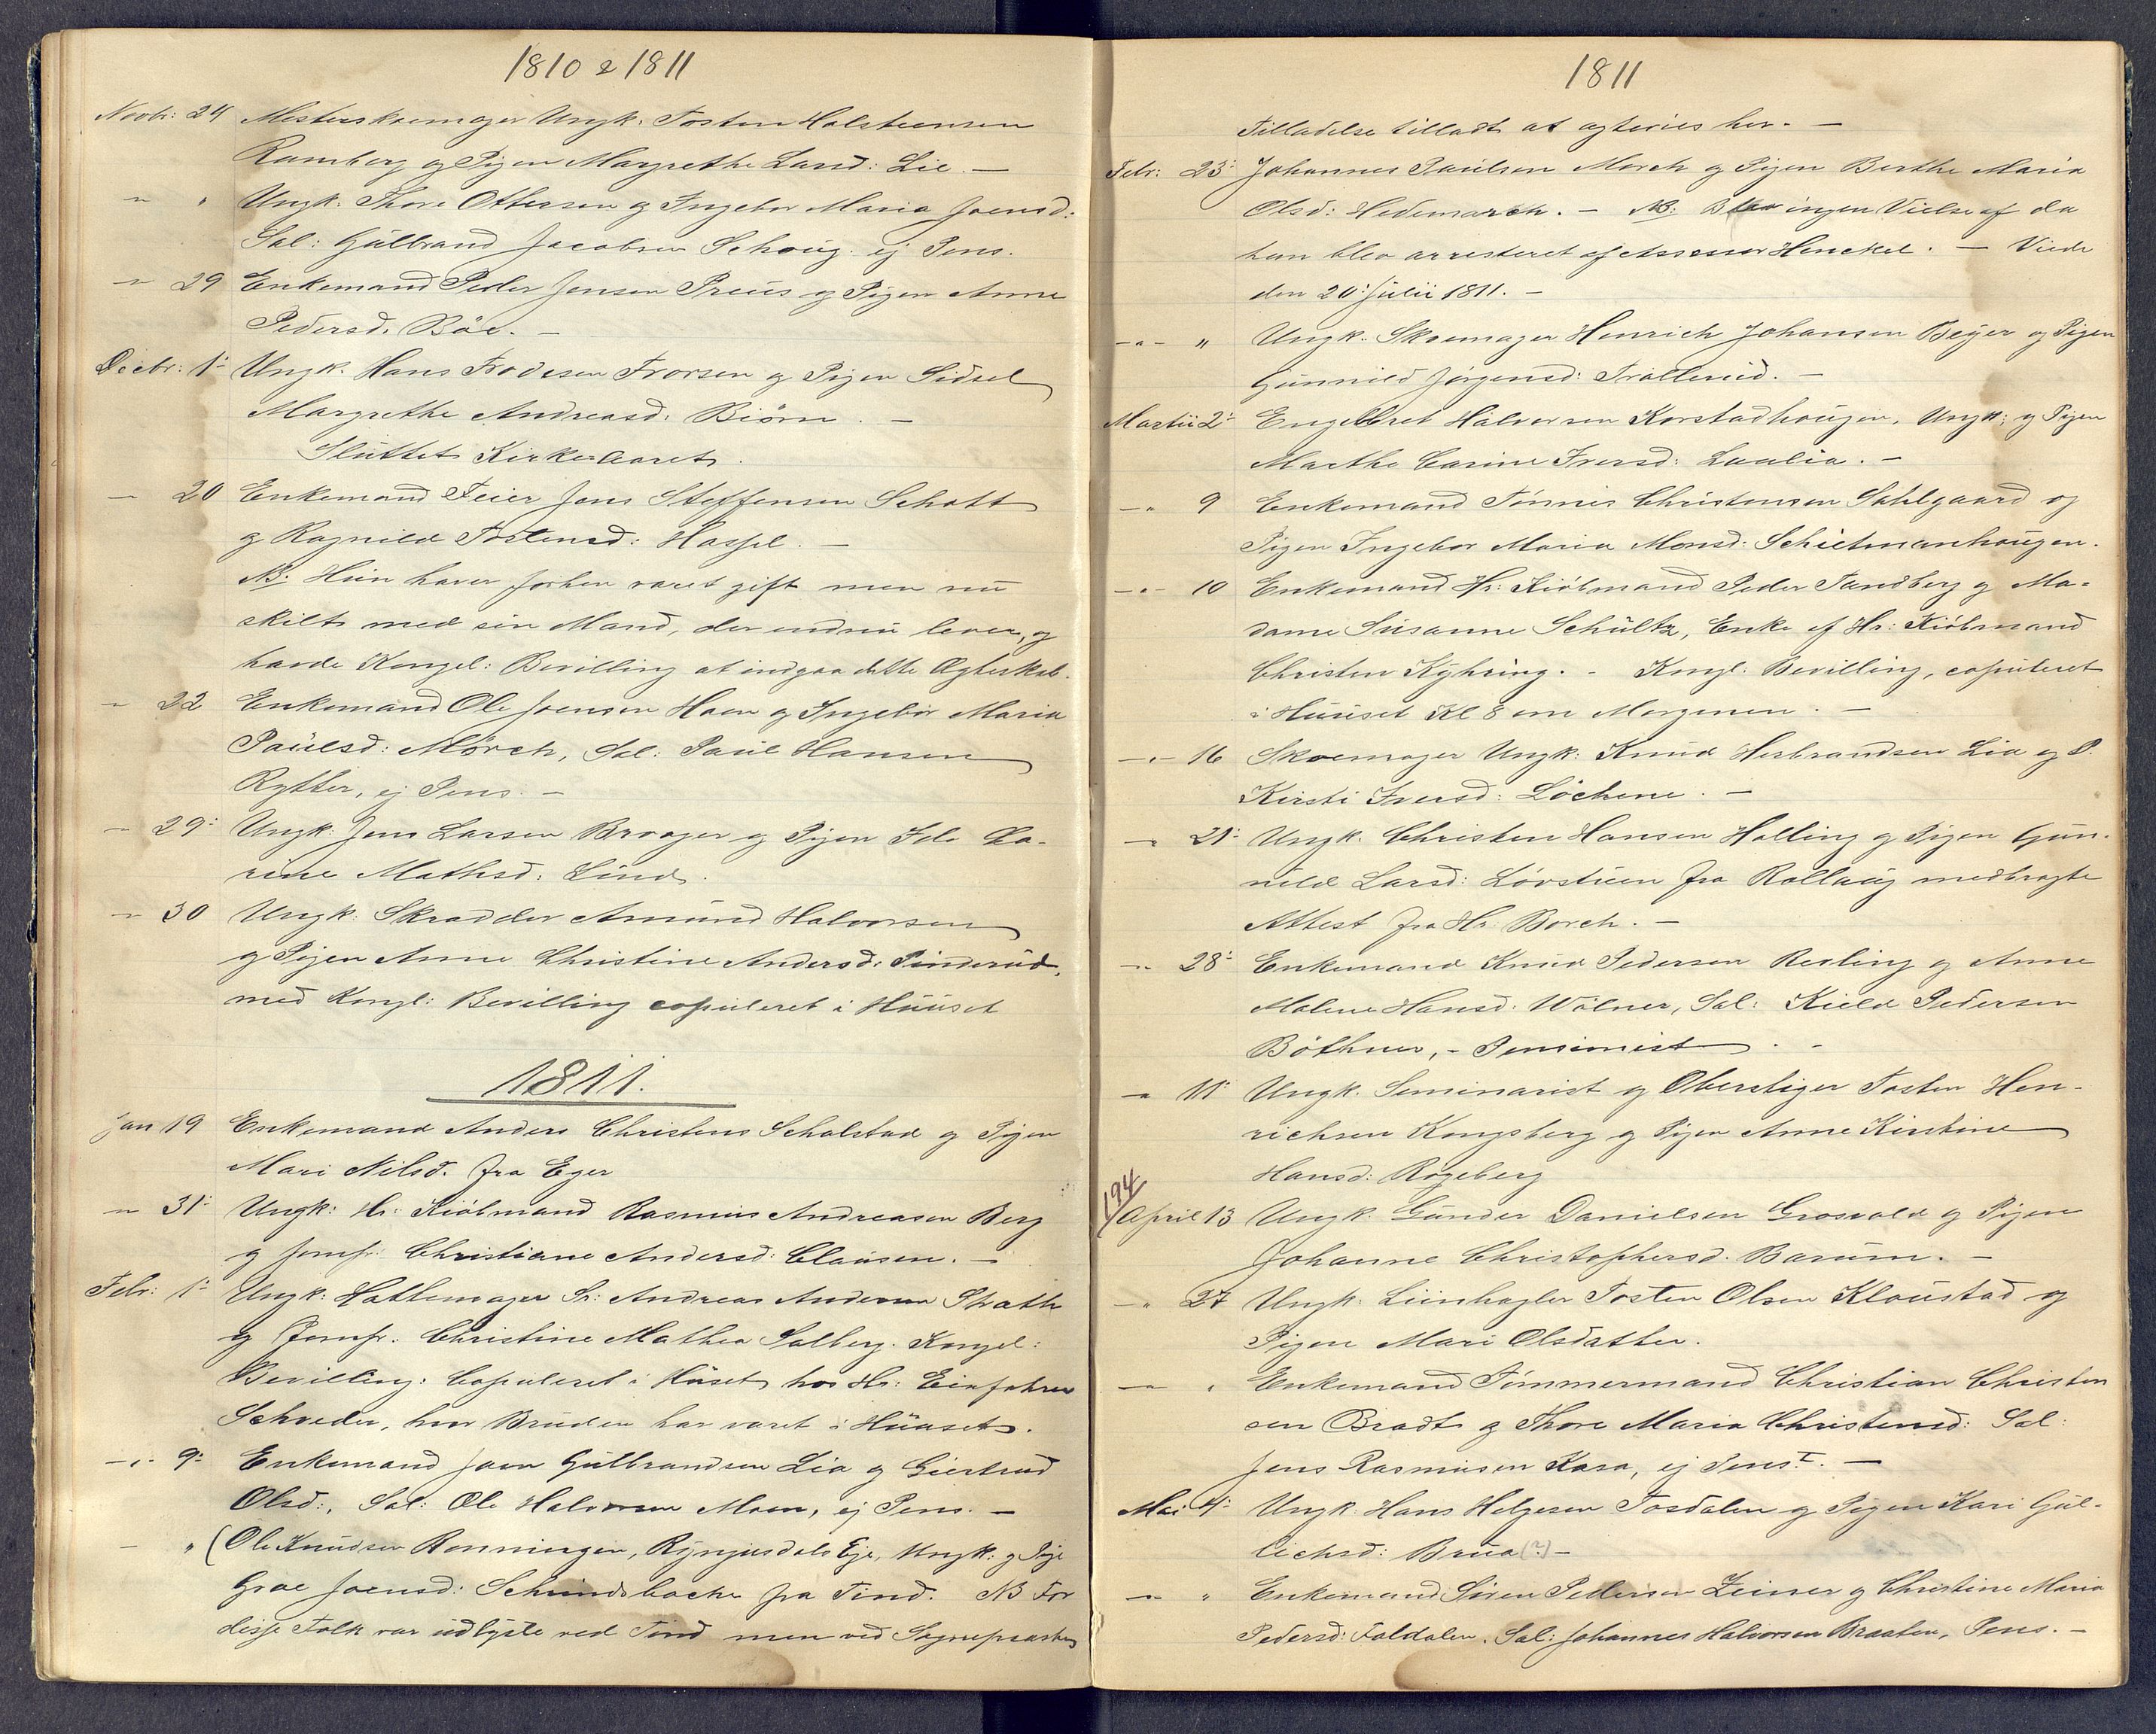 1810 & 1811
Novbr: 24 Mesterskoemager Ungk. Tosten Halsteensen
Ramberg og Pigen Margrethe Larsd: Lie. —
" " Ungk. Thore Ottersen og Ingebor Maria Joensd:
Sal: Gülbrand Jacobsen Schoug. ej Pens.
" 29 Enkemand Peder Jensen Preüs og Pigen Anne
Pedersd. Böe. —
Decbr: 1: Ungk. Hans Frodesen Frorsen og Pigen Sidsel
Margrethe Andreasd. Biörn. —
Slüttet Kirkeaaret.
— 20 Enkemand Feier Jens Steffensen Schott
og Ragnild Tostensd: Hassel. —
NB: Hün haver forhen varet gift men nü
skilt med sin Mand, der endnü lever, og
havde Kongel: Bevilling at indgaa dette Ægteskab.
" 22 Enkemand Ole Joensen Haen og Ingebor Maria
Paülsd: Mörch, Sal: Paül Hansen
Rytter, ej Pens. —
— 29: Ungk. Jens Larsen Brager og Pigen Ide Ca-
rine Mathsd: Lind.
" 30 Ungk. Skrædder Amünd Halvorsen
og Pigen Anne Christine Andersd. Pinderüd,
med Kongl: Bevilling copüleret i Hüüset
1811.
Jan 19 Enkemand Anders Christens Scholstad og Pigen
Mari Nilsd. fra Eger
" 31: Ungk: Hr: Kiöbmand Rasmus Andreasen Berg
og Jomfr. Christiane Andersd: Clausen. —
Febr: 1: Ungk: Hattemager Sr: Andreas Andersen Strath
og Jomfr. Christine Mathea Salberg. Kongel:
Bevilling: Copuleret i Hüset hos Hr: Einfahrer
Schreder, hvor Brüden har varet i Hüüset.
—"— 9: Enkemand Joen Gülbrandsen Lia og Giertrud
Olsd:, Sal: Ole Halvorsen Moen, ej Pens. —
— " (Ole Knüdsen Ronningen, Ryngisdals Eje, Ungk: og Pige
Groe Joensd: Schrindsbacke fra Tind. NB For
disse Folk var üdlyste ved Tind men ved
1811
Tilladelse tilladt at ægtevies her. —
Febr: 23: Johannes Paülsen Morch og Pigen Berthe Maria
Olsd: Hedemarch. — NB: Blev ingen Vielse af da
han blev arresteret af Assessor Henckel. — Viede
den 20: Julii 1811. —
—"— " Ungk. Skoemager Henrich Johansen Beyer og Pigen
Günnild Jörgensd: Trollerüd. —
Martii 2: Engelbret Halvorsen Korstadhougen, Ungk: og Pigen
Marthe Carine Iversd: Laulia. —
—" 9 Enkemand Tönnis Christensen Sahlgaard og
Pigen Ingebor Maria Monsd: Schietmanhougen.
—"— 10 Enkemand Hr: Kiöbmand Peder Tandberg og Ma-
dame Süsanne Schültz, Enke af Hr: Kiöbmand
Christen Kyhring. — Kongl. Bevilling, copüleret
i Hüüset Kl 8 om Morgenen. —
—"— 16 Skoemager Ungk: Knüd Herbrandsen Lia og P.
Kirsti Iversd: Löchene. —
—" 21: Ungk. Christen Hansen Halling og Pigen Gün-
nild Larsd: Lövstüen fra Rollaug medbragte
Attest fra Hr. Borch. —
—" 28: Enkemand Knüd Pedersen Revling og Anne
Malene Hansd: Wölner, Sal: Kield Pedersen
Böthner, — Pensionist. —
—" 11: Ungk. Seminarist og Oberstiger Tosten Hen-
richsen Kongsberg og Pigen Anne Kirstine
Hansd: Rogeberg
194
April 13 Ungk. Günder Danielsen Grosvold og Pigen
Johanne Christophersd. Barüm. —
—" 27 Ungk. Liinhagler Tosten Olsen Kloustad og
Pigen Mari Olsdatter.
—" " Enkemand Tömmermand Christian Christen
sen Bradt og Thore Maria Christensd: Sal:
Jens Rasmüsen Kasa, ej Penst. —
Mai 4: Ungk. Hans Helgesen Fosdalen og Pigen Kari Gül-
lichsd: Brua (?) —
—" " Enkemand Sören Pedersen Zeiner og Christine Maria
Pedersd: Faldalen. Sal: Johannes Halvorsen Braaten, Pens. —